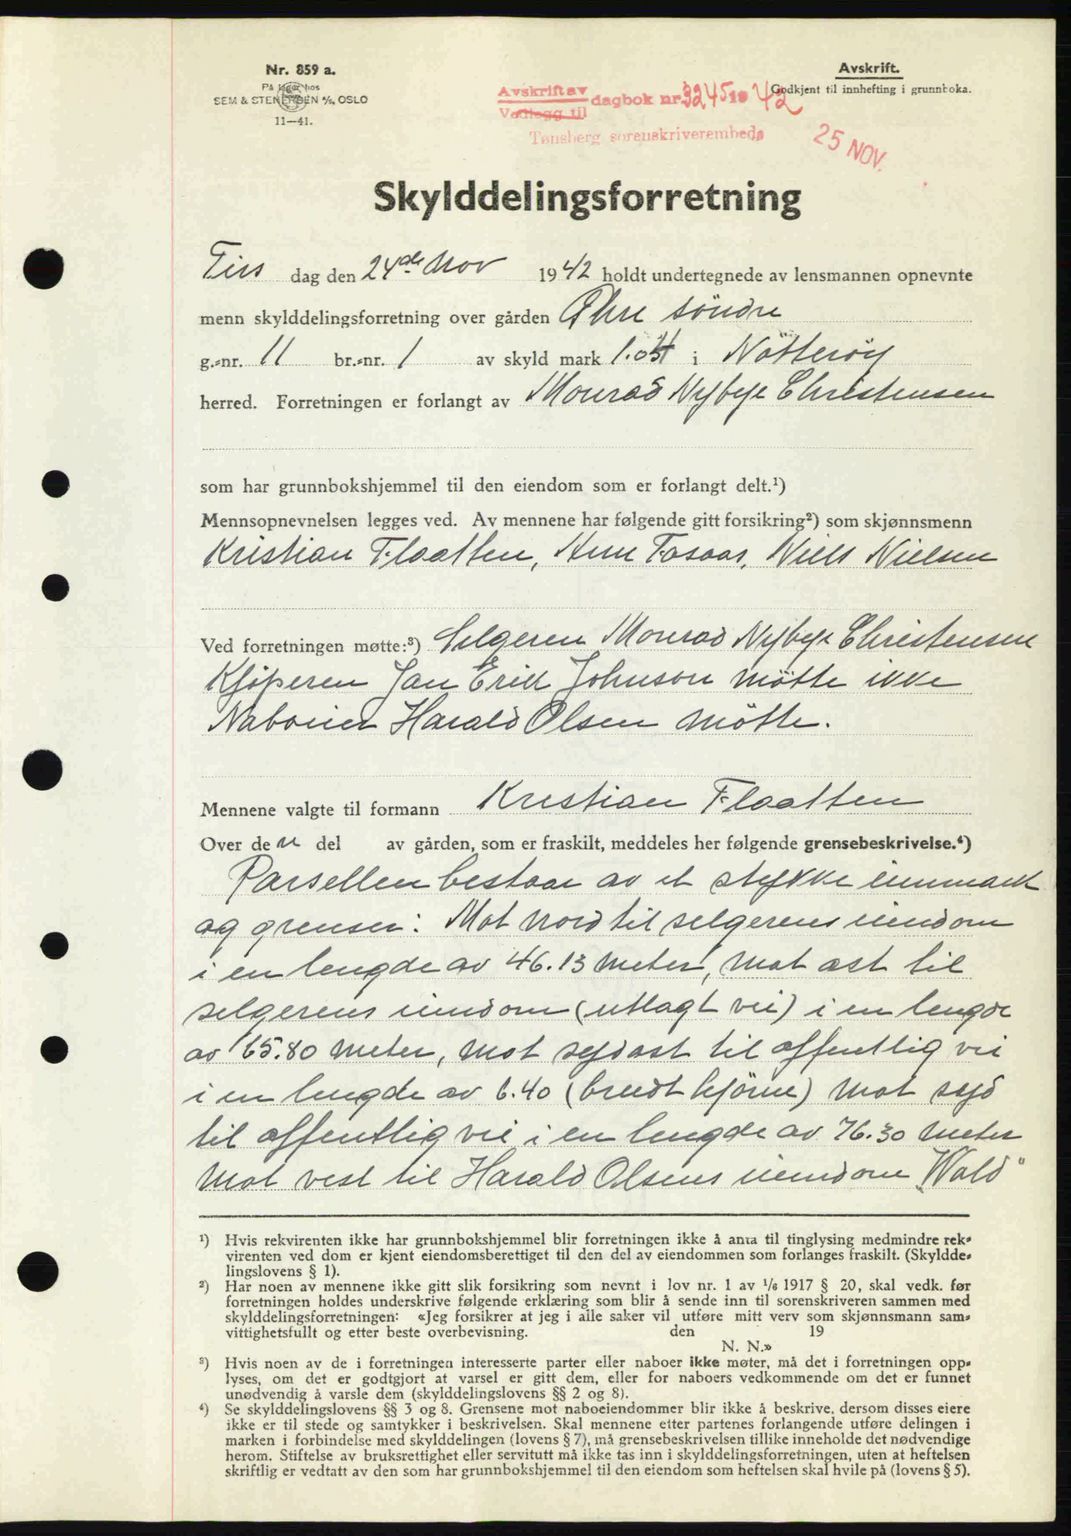 Nr. 859 a.
På lager hos
SEM & STENERSEN A/S, OSLO
11—41.
Avskrift.
Godkjent til innhefting i grunnboka.
Avskrift av
Vedlegg til
dagbok nr. 3245 19 42
Tønsberg sorenskriverembede
25 NOV.
Skylddelingsforretning
Tirs dag den 24de Nov 1942 holdt undertegnede av lensmannen opnevnte
menn skylddelingsforretning over gården Øhre söndre
g.-nr. 11 br.-nr. 1 av skyld mark 1.04 i Nötteröy
herred. Forretningen er forlangt av Monrad Nybye Christensen
som har grunnbokshjemmel til den eiendom som er forlangt delt.¹)
Mennsopnevnelsen legges ved. Av mennene har følgende gitt forsikring²) som skjønnsmenn
Kristian Flaatten, Fosaas, Niels Nielsen
Ved forretningen møtte:³) Selgeren Monrad Nybye Christensen
Kjöperen Jan Erik Johnson mötte ikke
Naboen Harald Olsen mötte.
Mennene valgte til formann Kristian Flaatten
Over den del av gården, som er fraskilt, meddeles her følgende grensebeskrivelse.⁴)
Parsellen bestaar av et stykke innmark
og grenser: Mot nord til selgerens eiendom
i en lengde av 46.13 meter, mot øst til
selgerens eiendom (utlagt vei) i en lengde
av 65.80 meter, mot sydøst til offentlig vei
i en lengde av 6.40 (brudt hjörne) mot syd
til offentlig vei i en lengde av 76.30 meter
mot vest til Harald Olsens eiendom „Wold"
¹) Hvis rekvirenten ikke har grunnbokshjemmel blir forretningen ikke å anta til tinglysing medmindre rek-
virenten ved dom er kjent eiendomsberettiget til den del av eiendommen som forlanges fraskilt. (Skyldde-
lingslovens § 1).
²) Har noen av mennene ikke gitt slik forsikring som nevnt i lov nr. 1 av 1/6 1917 § 20, skal vedk. før
forretningen holdes underskrive følgende erklæring som blir å sende inn til sorenskriveren sammen med
skylddelingsforretningen: «Jeg forsikrer at jeg i alle saker vil utføre mitt verv som skjønnsmann sam-
vittighetsfullt og etter beste overbevisning. den 19
N. N.»
³) Hvis noen av de i forretningen interesserte parter eller naboer ikke møter, må det i forretningen opp-
lyses, om det er godtgjort at varsel er gitt dem, eller for naboers vedkommende om det er funnet
unødvendig å varsle dem (skylddelingslovens §§ 2 og 8).
⁴) Se skylddelingslovens §§ 3 og 8. Grensene mot naboeiendommer blir ikke å beskrive, dersom disses eiere
ikke er til stede og samtykker i beskrivelsen. Skal mennene etter partenes forlangende utføre delingen i
marken i forbindelse med skylddelingen (lovens § 7), må grensebeskrivelsen tillike inneholde det nødvendige
herom. Stiftelse av bruksrettighet eller servitutt må ikke tas inn i skylddelingsforretningen, uten at heftelsen
skriftlig er vedtatt av den som har grunnbokshjemmel til den eiendom som heftelsen skal hvile på (lovens § 5).